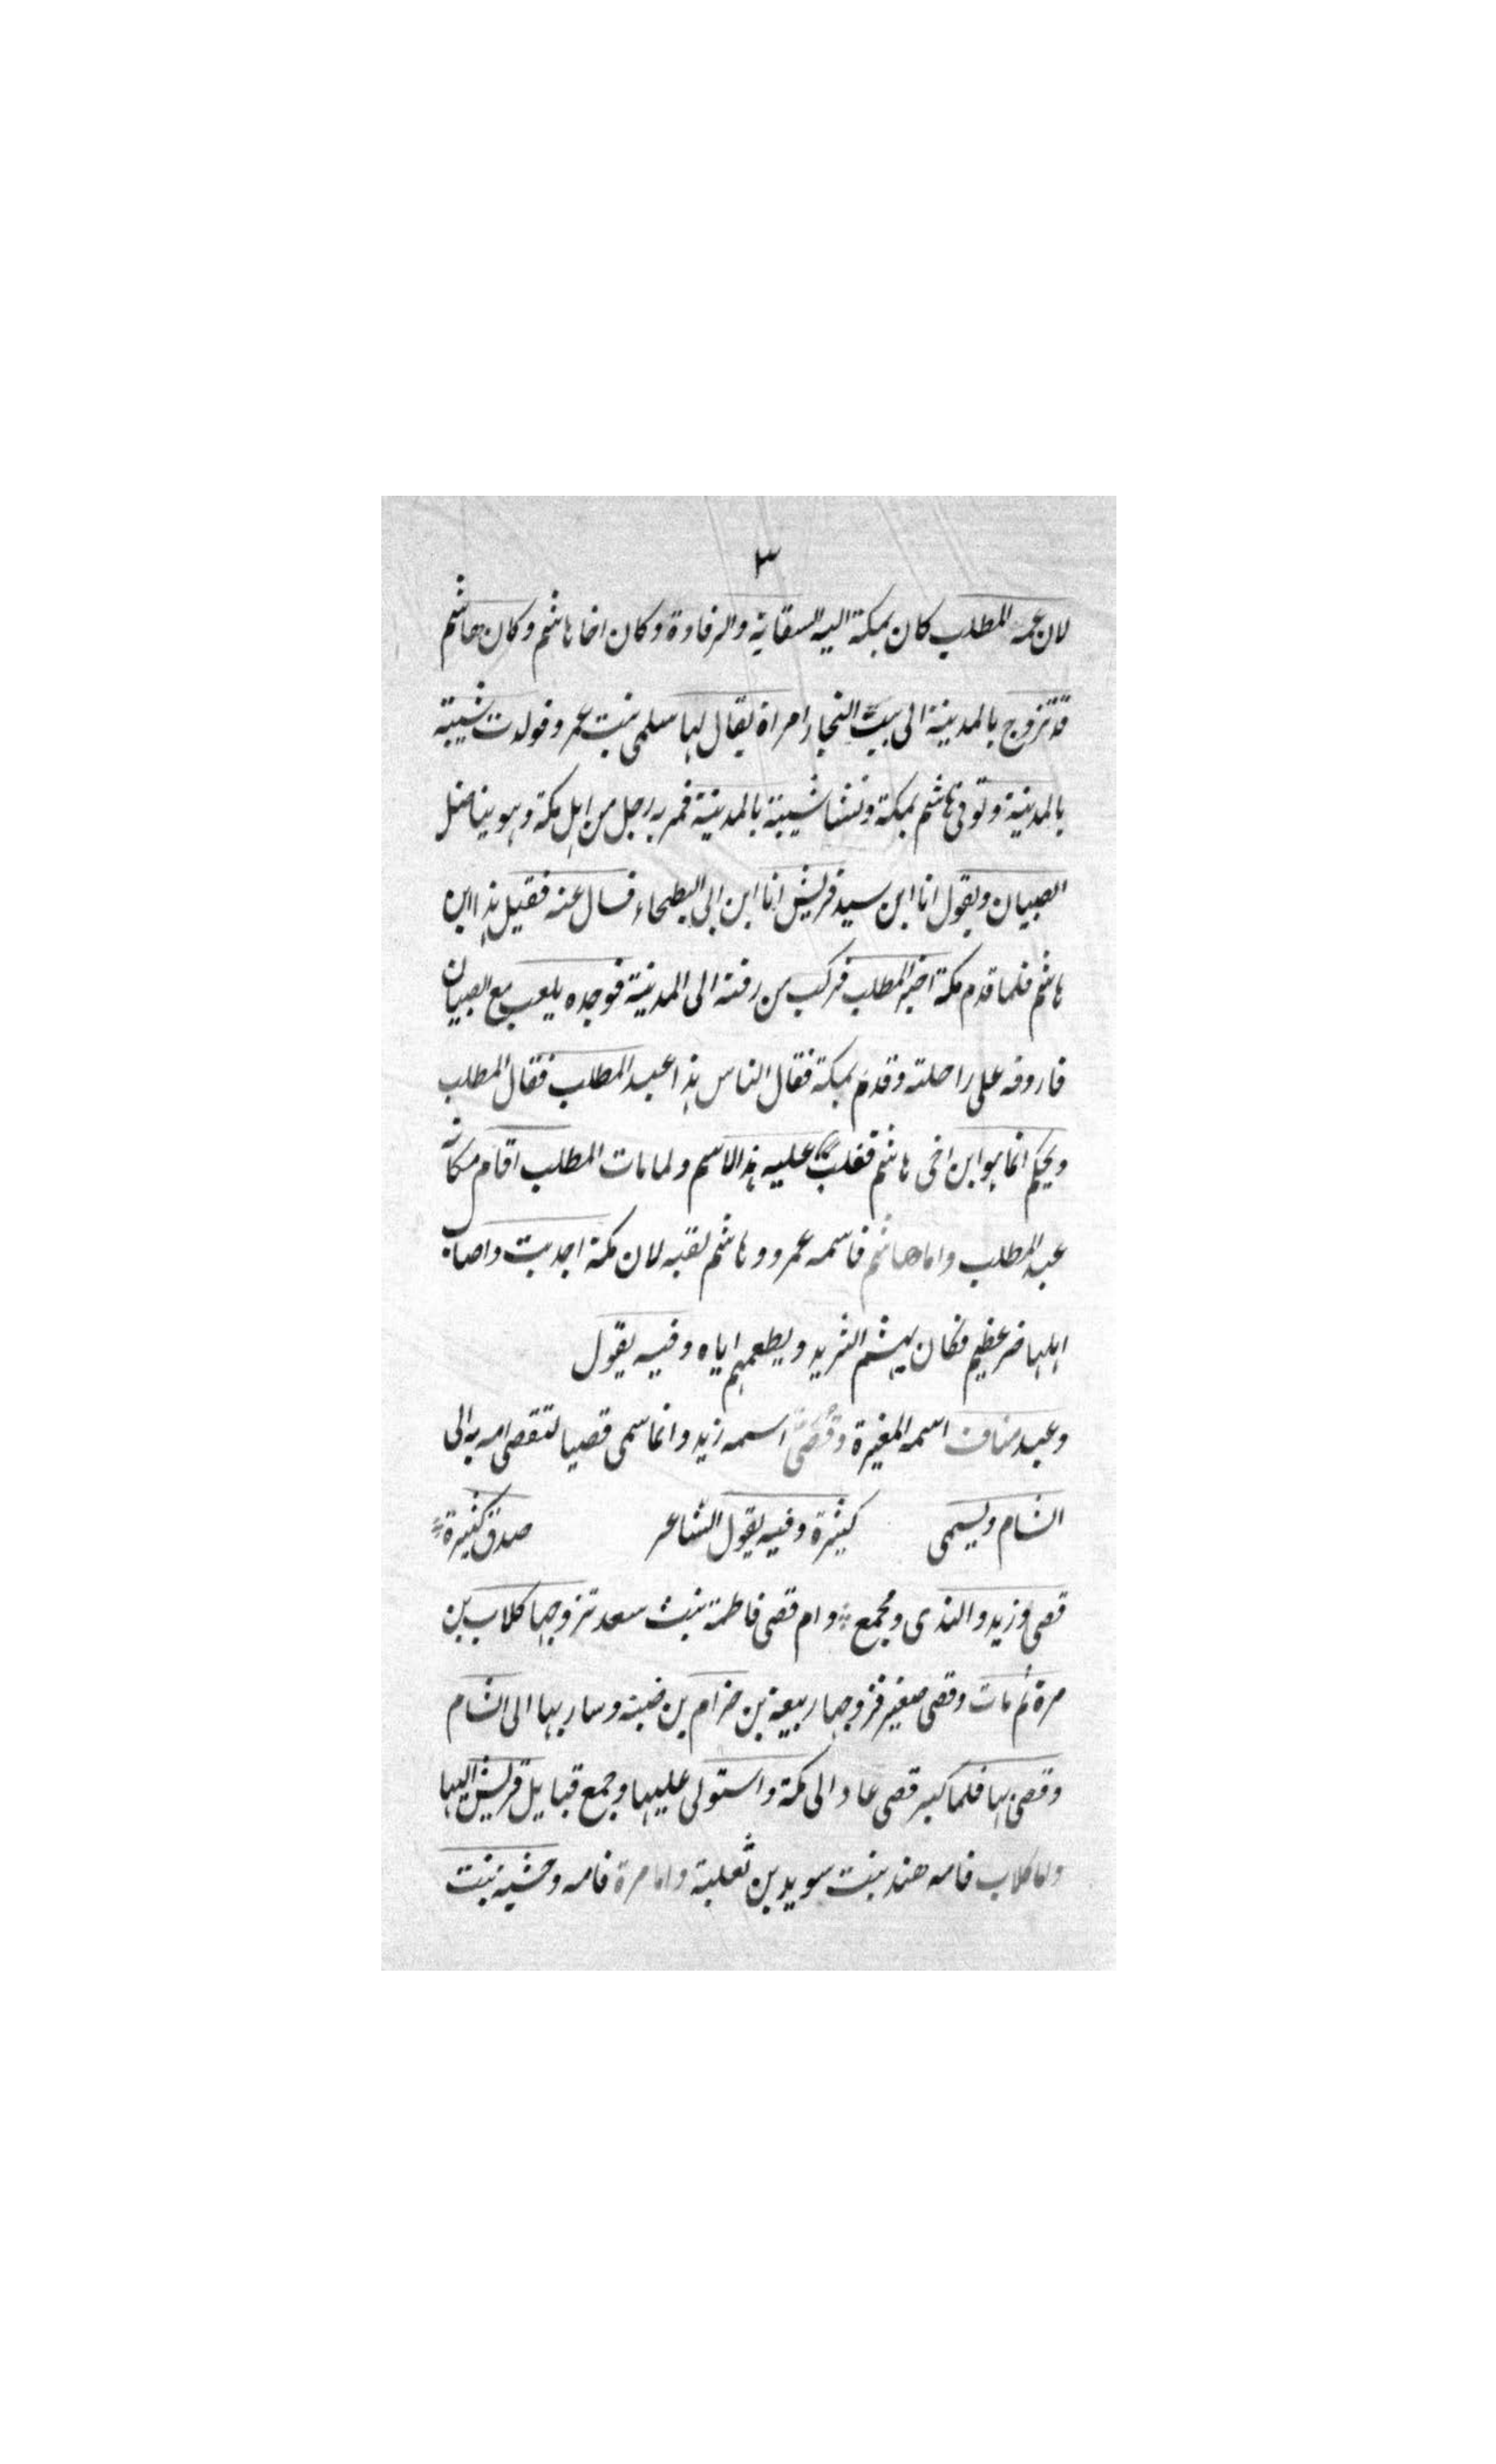 ٣
لان عمه المطلب كان بمكة اليه السقاية والرفادة وكان اخا هاشم وكان هاشم
قد تزوج بالمدينة الى بيت النجار امراة يقال لها سلمى بنت عمرو فولدت شيبة
بالمدينة وتوفى هاشم بمكة ونشا شيبة بالمدينة فمر به رجل من اهل مكة وهو يناضل
الصبيان ويقول انا ابن سيد قريش انا ابن ابى البطحاء فسال عنه فقيل هذا ابن
هاشم فلما قدم مكة اخبر المطلب فركب من رفته الى المدينة فوجده يلعب مع الصبيان
فاردفه على راحلته وقدم بمكة فقال الناس هذا عبد المطلب فقال المطلب
ويحكم انما هو ابن اخى هاشم فغلب عليه هذا الاسم ولما مات المطلب اقام مكانه
عبد المطلب واما هاشم فاسمه عمرو وهاشم لقبه لان مكة اجدبت واصاب
اهلها ضر عظيم فكان يهشم الثريد ويطعمهم اياه وفيه يقول
وعبد مناف اسمه المغيرة وقصى اسمه زيد وانما سمى قصيا لتقصى امه به الى
الشام ويسمى كثيرة وفيه يقول الشاعر صدق كثيرة
قصى وزيد والندى ومجمع وام قصى فاطمة بنت سعد تزوجها كلاب بن
مرة ثم مات وقصى صغير فزوجها ربيعة بن حزام بن ضبنه وسار بها الى الشام
وقصى بها فلما كبر قصى عاد الى مكة واستولى عليها وجمع قبايل قريش اليها
واما كلاب فامه هند بنت سويد بن ثعلبة واما مرة فامه وحشية بنت